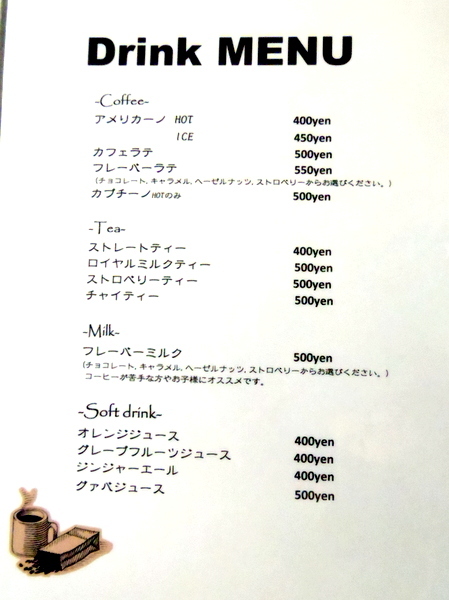 Drink MENU
-Coffee-
アメリカーノ HOT 400yen
ICE 450yen
カフェラテ 500yen
フレーバーラテ 550yen
(チョコレート, キャラメル, ヘーゼルナッツ, ストロベリーからお選びください。)
カプチーノHOTのみ 500yen
-Tea-
ストレートティー 400yen
ロイヤルミルクティー 500yen
ストロベリーティー 500yen
チャイティー 500yen
-Milk-
フレーバーミルク 500yen
(チョコレート, キャラメル, ヘーゼルナッツ, ストロベリーからお選びください。)
コーヒーが苦手な方やお子様にオススメです。
-Soft drink-
オレンジジュース 400yen
グレープフルーツジュース 400yen
ジンジャーエール 400yen
グァバジュース 500yen